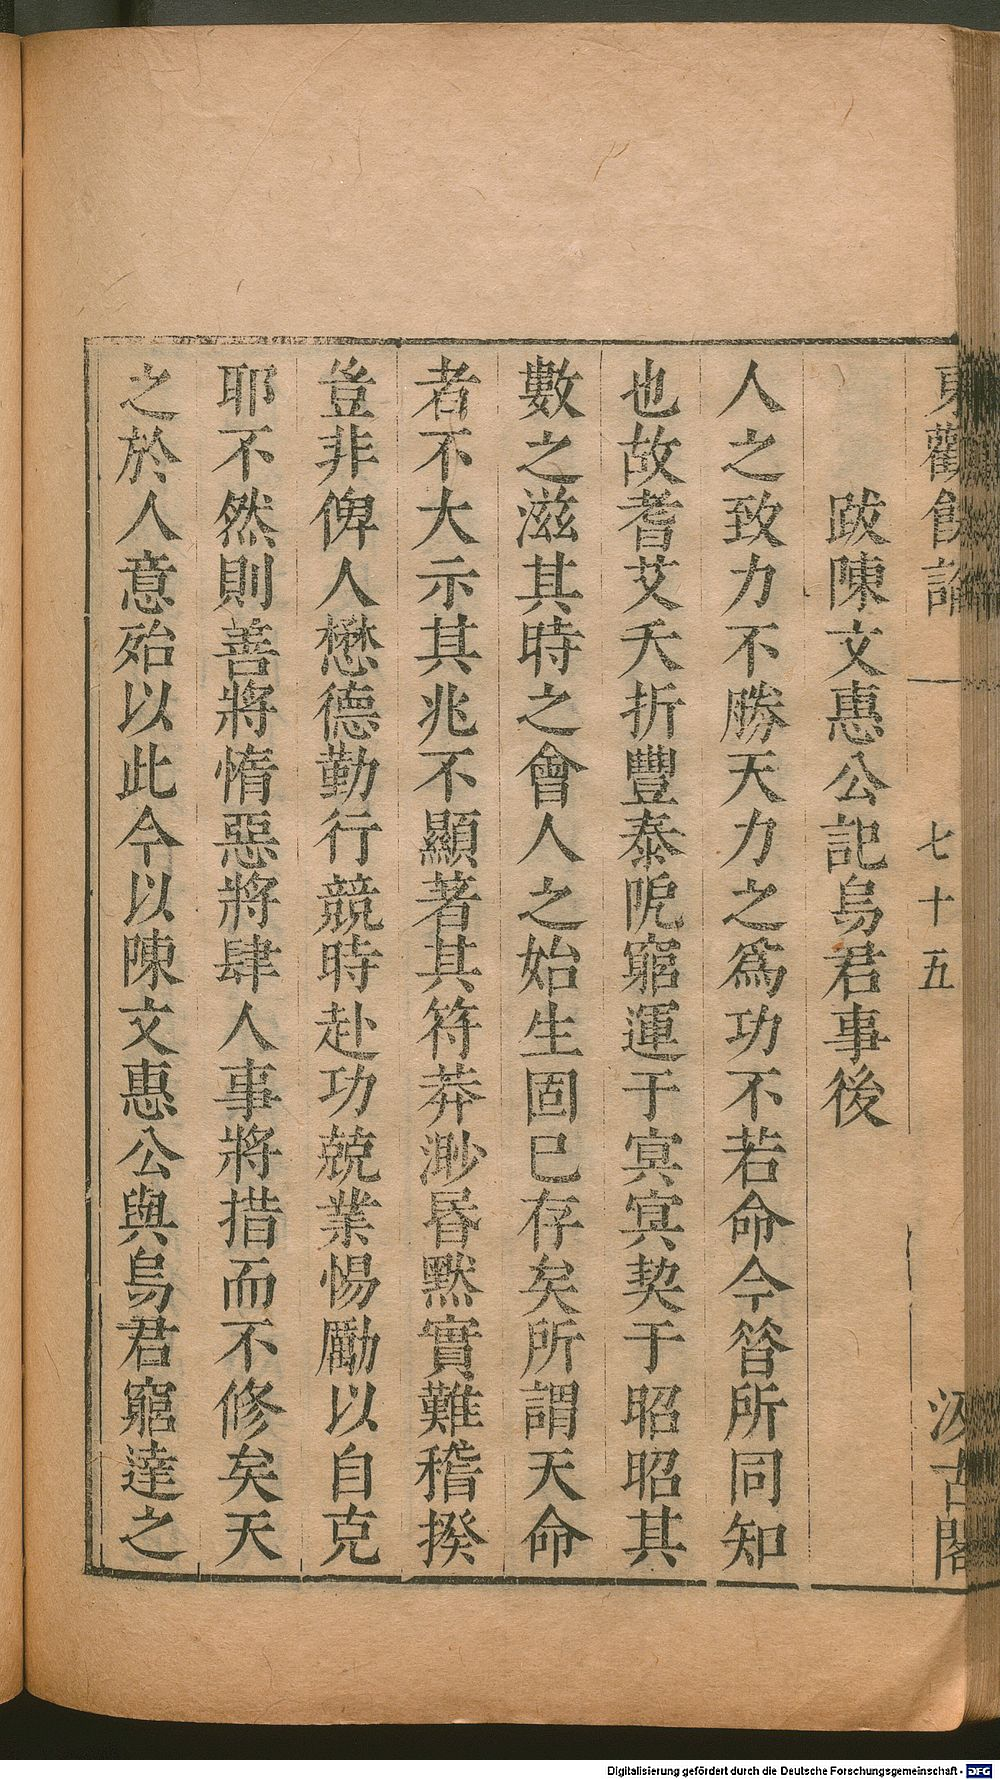 東觀餘論
七十五
汲古閣
跋陳文惠公記烏君事後
人之致力不勝天力之爲功不若命今㫺所同知
也故耆艾夭折豐泰阨窮運于㝠㝠契于昭昭其
數之滋其時之會人之始生固已存矣所謂天命
者不大示其兆不顯著其符莽渺昬黙實難稽揆
豈非俾人懋德勤行競時赴功兢業惕勵以自克
耶不然則善將惰惡將肆人事將措而不修矣天
之於人意殆以此今以陳文惠公與烏君窮達之
Digitalisierung gefördert durch die Deutsche Forschungsgemeinschaft - DFG